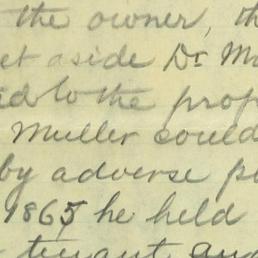 the owner, th
et aside Dr Mu
ed to the prop
Muller could
by adverse po
1865 he held
tenant and